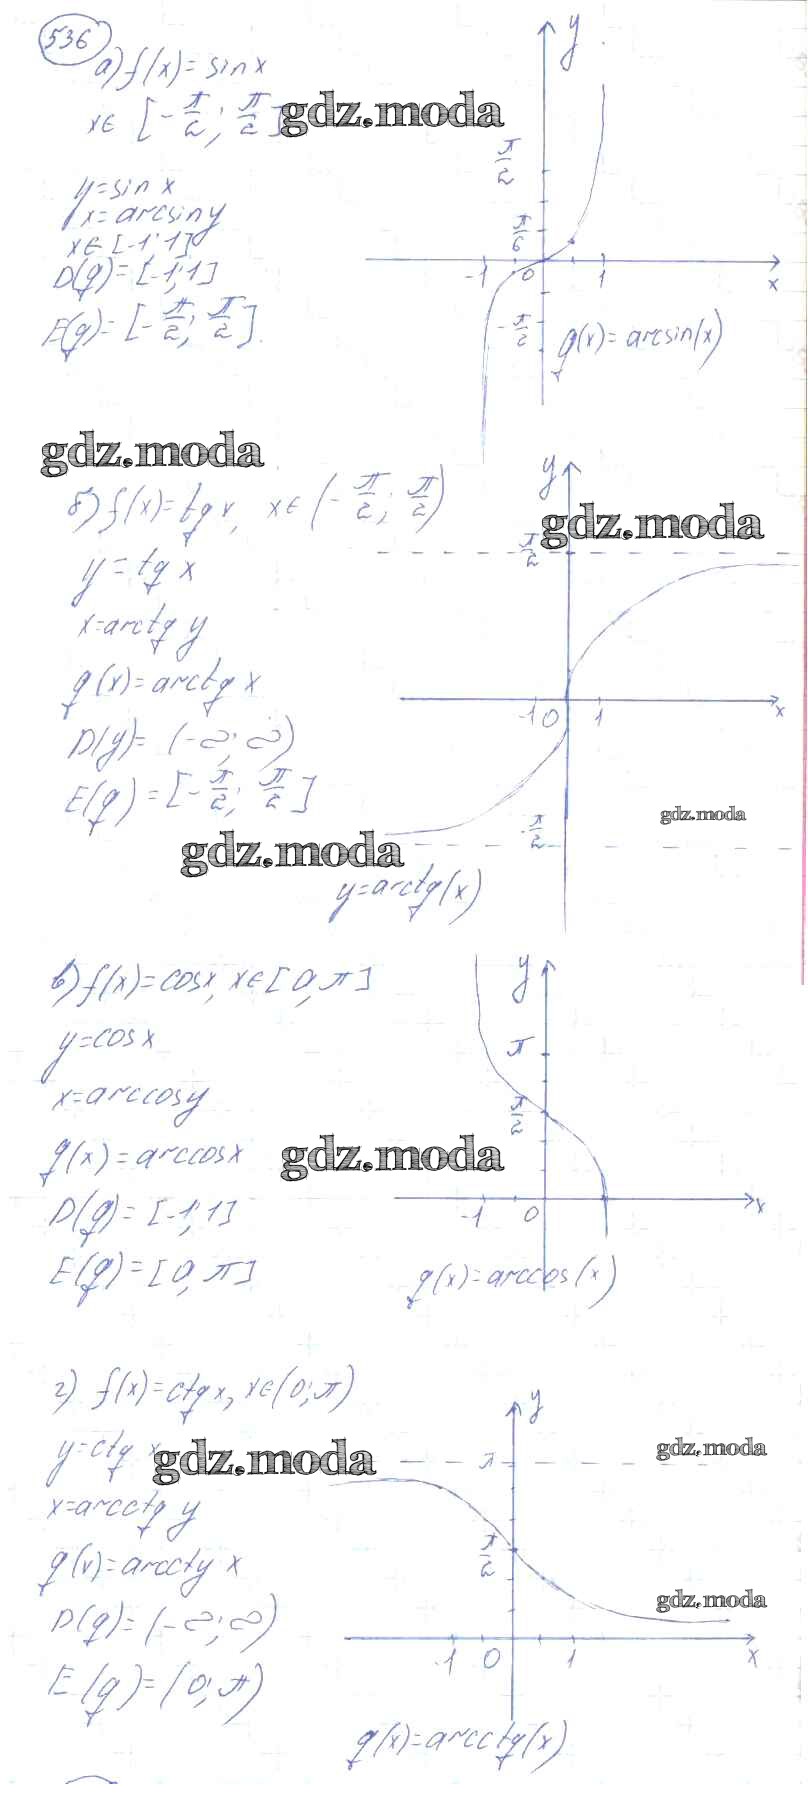 536
а) f(x) = sin x
x ∈ [-π/2; π/2]
gdz.moda
y = sin x
x = arcsin y
x ∈ [-1; 1]
D(g) = [-1; 1]
E(g) = [-π/2; π/2].
y
π/2
π/6
-1 0 1 x
-π/2
g(x) = arcsin(x)
gdz.moda
б) f(x) = tg x, x ∈ (-π/2; π/2)
y = tg x
x = arctg y
g(x) = arctg x
D(y) = (-∞; ∞)
E(g) = [-π/2; π/2]
y
gdz.moda
π/2
-1 0 1 x
-π/2
gdz.moda
gdz.moda
y = arctg(x)
в) f(x) = cos x, x ∈ [0, π]
y = cos x
x = arccos y
g(x) = arccos x
D(g) = [-1; 1]
E(g) = [0, π]
y
π
π/2
gdz.moda
-1 0 x
g(x) = arccos(x)
г) f(x) = ctg x, x ∈ (0; π)
y = ctg x
x = arcctg y
g(x) = arccty x
D(g) = (-∞; ∞)
E(g) = (0; π)
y
gdz.moda
gdz.moda
π
π/2
gdz.moda
-1 0 1 x
g(x) = arcctg(x)